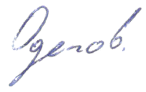 Одегов.